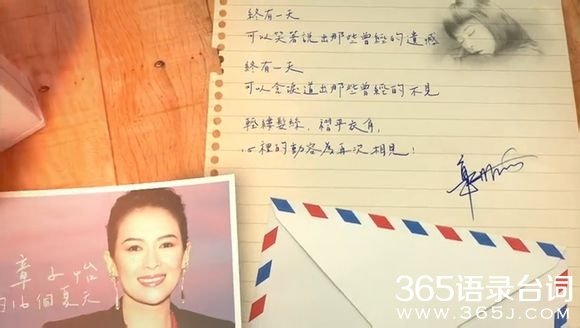 終有一天
可以笑著說出那些曾經的遺憾
終有一天
可以含淚道出那些曾經的不見
輕縷髮絲，褶平衣角，
心裡的動容為再次相見！
章子怡
的16個夏天
365语录台词
WWW.365J.COM